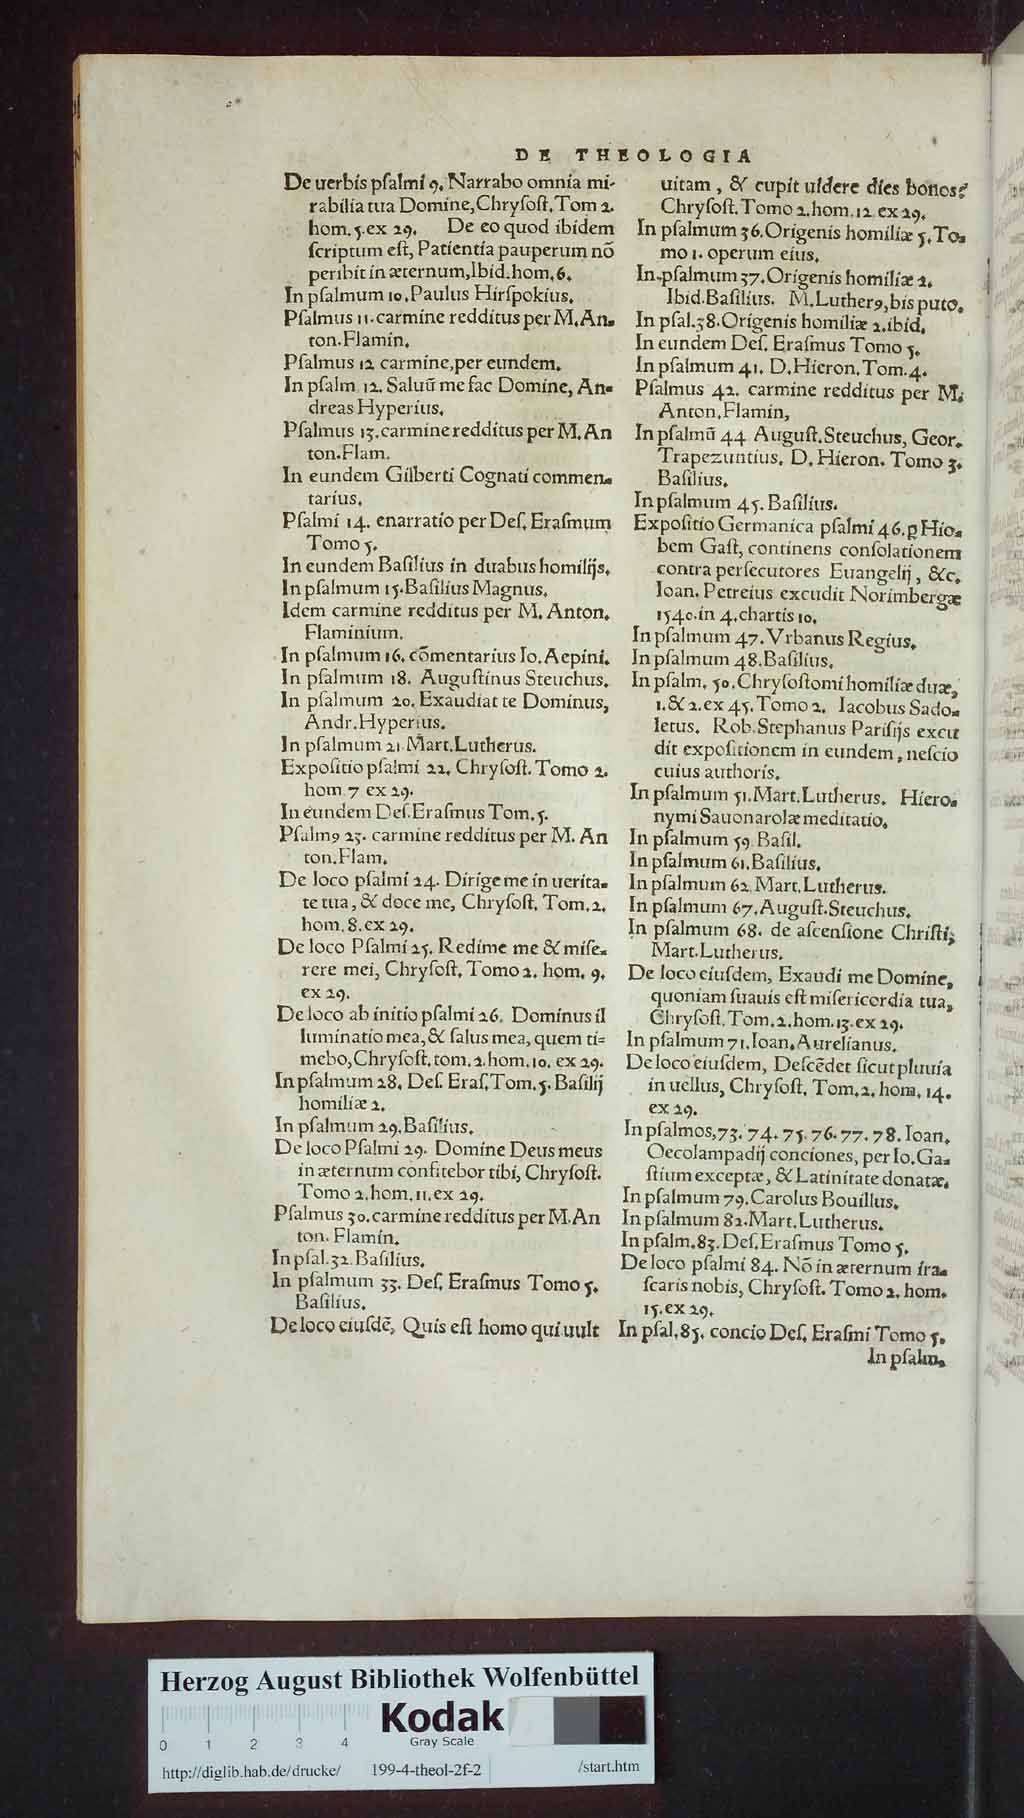 DE THEOLOGIA
De uerbis pſalmi 9. Narrabo omnia mi-
rabilia tua Domine, Chryſoſt. Tom 2.
hom. 5. ex 29. De eo quod ibidem
ſcriptum eſt, Patientia pauperum nō
peribit in æternum, Ibid. hom. 6.
In pſalmum 10. Paulus Hirſpokius.
Pſalmus 11. carmine redditus per M. An-
ton. Flamin.
Pſalmus 12 carmine, per eundem.
In pſalm 12. Saluū me fac Domine, An-
dreas Hyperius.
Pſalmus 13. carmine redditus per M. An
ton. Flam.
In eundem Gilberti Cognati commen-
tarius.
Pſalmi 14. enarratio per Deſ. Eraſmum
Tomo 5.
In eundem Baſilius in duabus homilijs.
In pſalmum 15. Baſilius Magnus.
Idem carmine redditus per M. Anton.
Flaminium.
In pſalmum 16. cōmentarius Io. Aepini.
In pſalmum 18. Auguſtinus Steuchus.
In pſalmum 20. Exaudiat te Dominus,
Andr. Hyperius.
In pſalmum 21. Mart. Lutherus.
Expoſitio pſalmi 22. Chryſoſt. Tomo 2.
hom 7 ex 29.
In eundem Deſ. Eraſmus Tom. 5.
Pſalmꝰ 23. carmine redditus per M. An
ton. Flam.
De loco pſalmi 24. Dirige me in uerita-
te tua, & doce me, Chryſoſt. Tom. 2.
hom. 8. ex 29.
De loco Pſalmi 25. Redime me & miſe-
rere mei, Chryſoſt. Tomo 2. hom. 9.
ex 29.
De loco ab initio pſalmi 26. Dominus il
luminatio mea, & ſalus mea, quem ti-
mebo, Chryſoſt. tom. 2. hom. 10. ex 29.
In pſalmum 28. Deſ. Eraſ. Tom. 5. Baſilij
homiliæ 2.
In pſalmum 29. Baſilius.
De loco Pſalmi 29. Domine Deus meus
in æternum confitebor tibi, Chryſoſt.
Tomo 2. hom. 11. ex 29.
Pſalmus 30. carmine redditus per M. An
ton. Flamin.
In pſal. 32. Baſilius.
In pſalmum 33. Deſ. Eraſmus Tomo 5.
Baſilius.
De loco eiuſdē, Quis eſt homo qui uult
uitam, & cupit uidere dies bonos?
Chryſoſt. Tomo 2. hom. 12 ex 29.
In pſalmum 36. Origenis homiliæ 5. To-
mo 1. operum eius.
In pſalmum 37. Origenis homiliæ 2.
Ibid. Baſilius. M. Lutherꝰ, bis puto.
In pſal. 38. Origenis homiliæ 2. ibid.
In eundem Deſ. Eraſmus Tomo 5.
In pſalmum 41. D. Hieron. Tom. 4.
Pſalmus 42. carmine redditus per M.
Anton. Flamin,
In pſalmū 44 Auguſt. Steuchus, Geor.
Trapezuntius. D. Hieron. Tomo 3.
Baſilius.
In pſalmum 45. Baſilius.
Expoſitio Germanica pſalmi 46. ꝑ Hio-
bem Gaſt, continens conſolationem
contra perſecutores Euangelij, &c.
Ioan. Petreius excudit Norimbergæ
1540. in 4. chartis 10.
In pſalmum 47. Vrbanus Regius.
In pſalmum 48. Baſilius.
In pſalm. 50. Chryſoſtomi homiliæ duæ,
1. & 2. ex 45. Tomo 2. Iacobus Sado-
letus. Rob. Stephanus Pariſijs excu
dit expoſitionem in eundem, neſcio
cuius authoris.
In pſalmum 51. Mart. Lutherus. Hiero-
nymi Sauonarolæ meditatio.
In pſalmum 59 Baſil.
In pſalmum 61. Baſilius.
In pſalmum 62. Mart. Lutherus.
In pſalmum 67. Auguſt. Steuchus.
In pſalmum 68. de aſcenſione Chriſti,
Mart. Lutherus.
De loco eiuſdem, Exaudi me Domine,
quoniam ſuauis eſt miſericordia tua,
Chryſoſt. Tom. 2. hom. 13. ex 29.
In pſalmum 71. Ioan. Aurelianus.
De loco eiuſdem, Deſcēdet ſicut pluuia
in uellus, Chryſoſt. Tom. 2. hom. 14.
ex 29.
In pſalmos, 73. 74. 75. 76. 77. 78. Ioan.
Oecolampadij conciones, per Io. Ga-
ſtium exceptæ, & Latinitate donatæ.
In pſalmum 79. Carolus Bouillus.
In pſalmum 82. Mart. Lutherus.
In pſalm. 83. Deſ. Eraſmus Tomo 5.
De loco pſalmi 84. Nō in æternum ira-
ſcaris nobis, Chryſoſt. Tomo 2. hom.
15. ex 29.
In pſal. 85. concio Deſ. Eraſmi Tomo 5.
In pſalm.
Herzog August Bibliothek Wolfenbüttel
Kodak
Gray Scale
0 1 2 3 4
http://diglib.hab.de/drucke/ 199-4-theol-2f-2 /start.htm